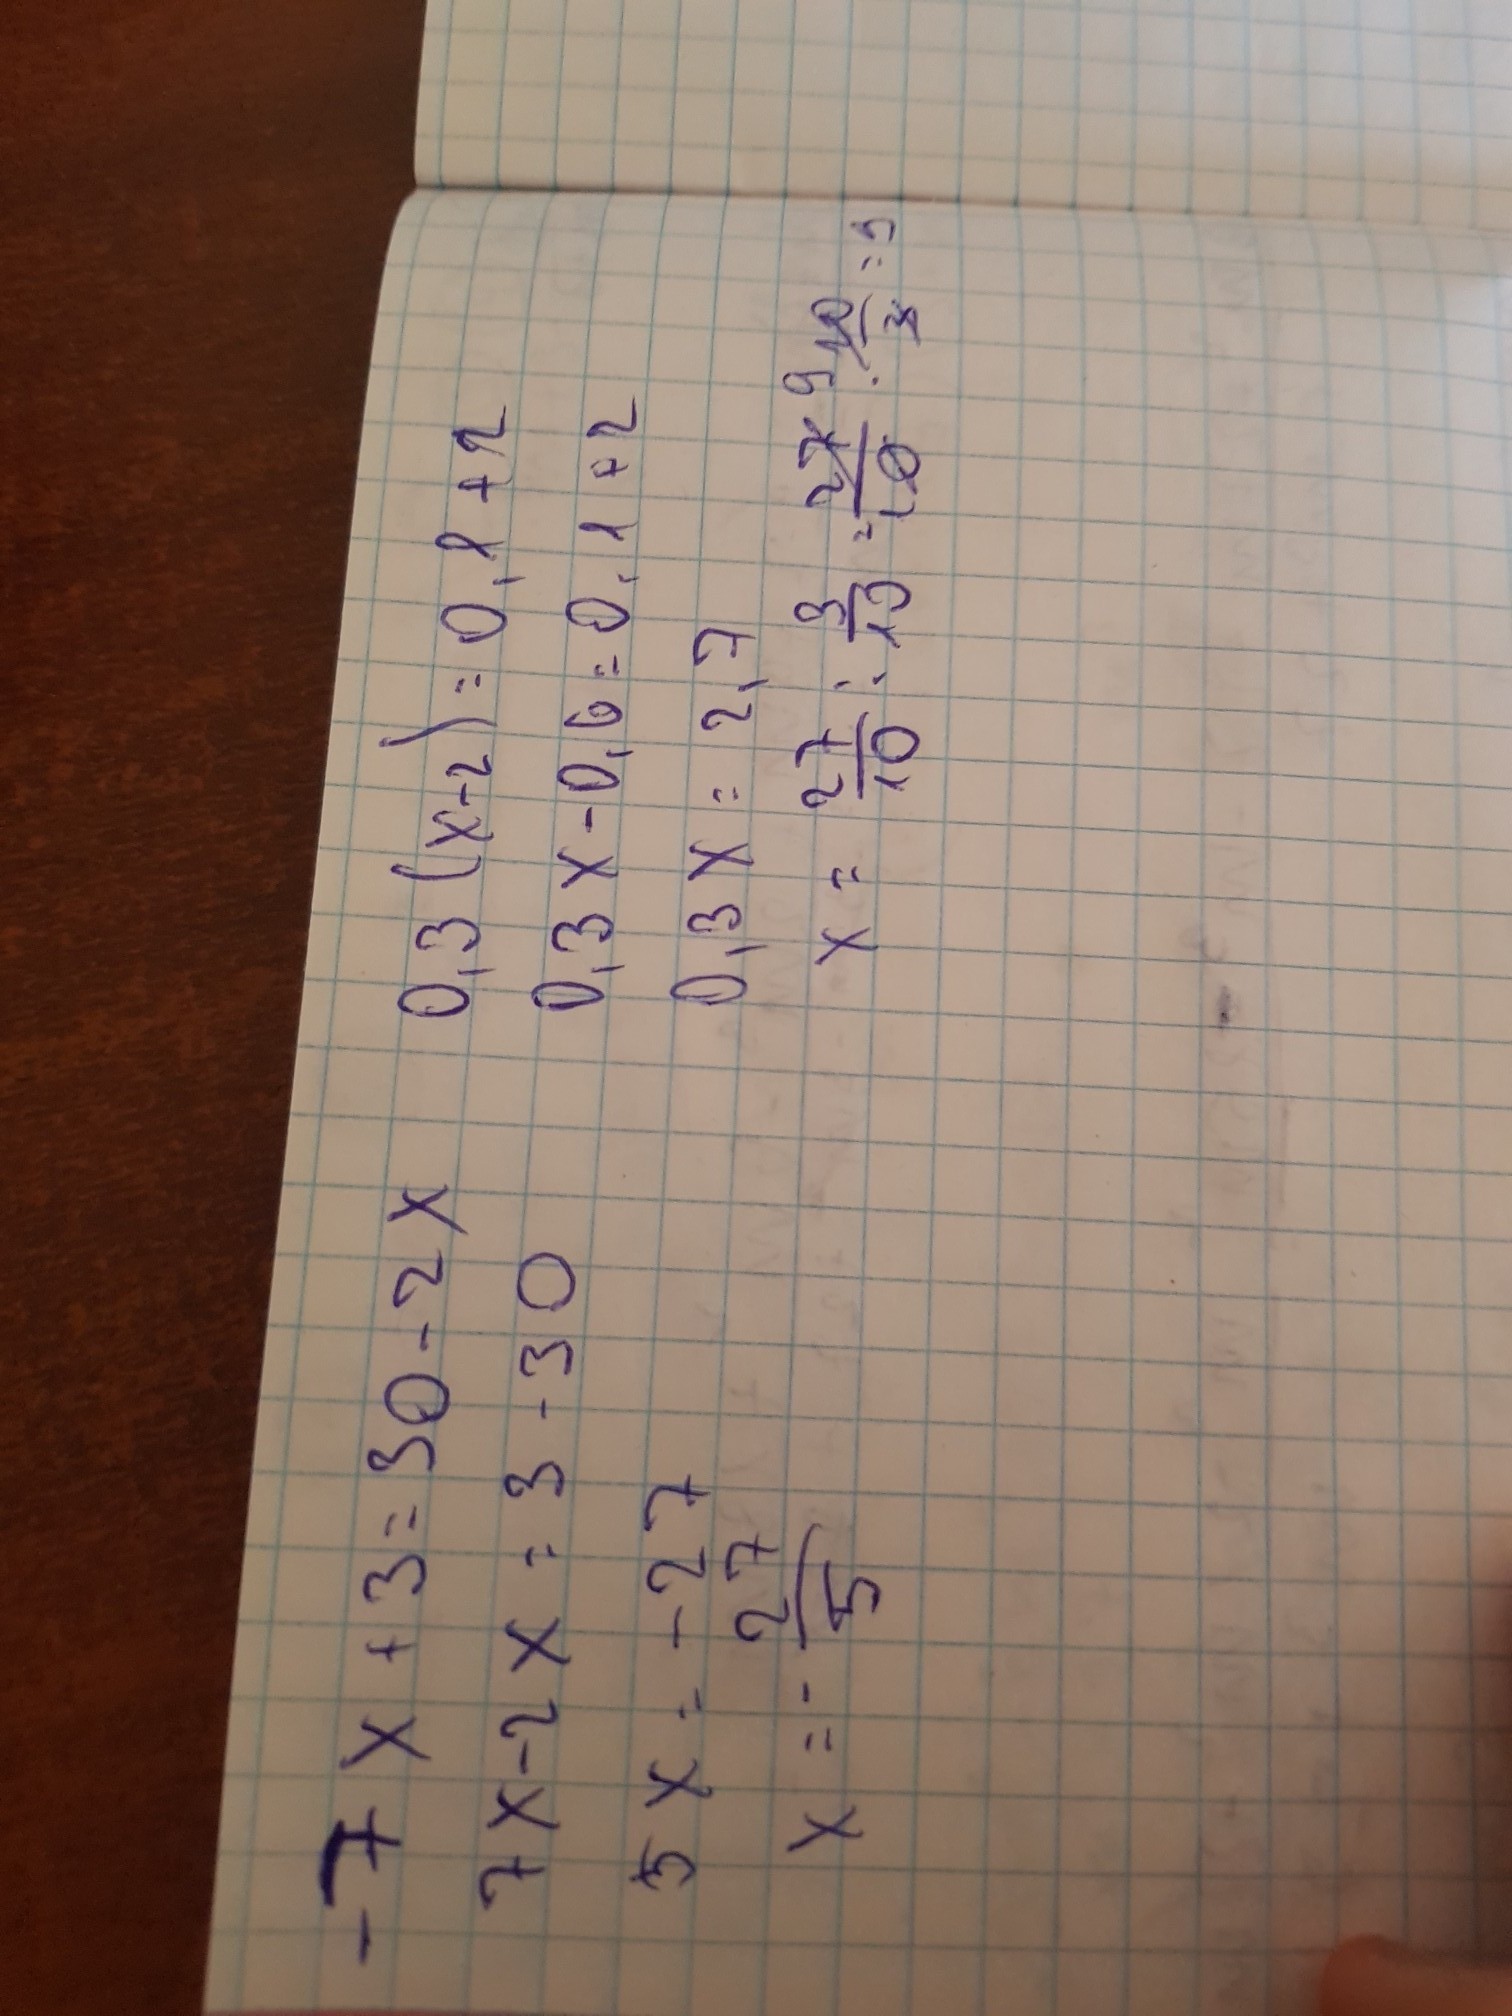 -7x+3=30-2x
7x-2x=3-30
5x=-27
x=-27/5
0,3(x-2)=0,1+2
0,3x-0,6=0,1+2
0,3x=2,7
x=27/10:3/10=27/10·10/3=9